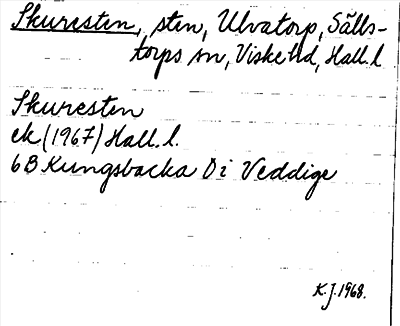 Skuresten, sten, Ulvatorp, Sälls-
torps sn, Viske hd, Hall. l
Skuresten
ek (1967) Hall. l.
6B Kungsbacka Di Veddige
K.J. 1968.